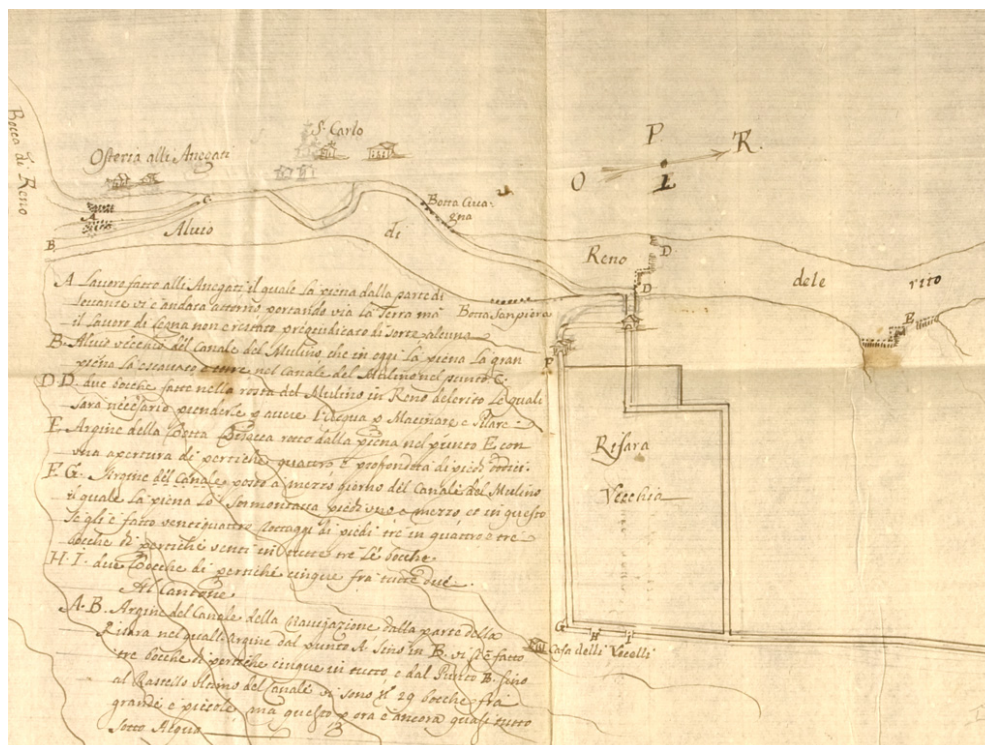 Bocca di Reno
Osteria alli Anegati
S. Carlo
P
O
R.
L
A
C
B
Aluio
di
Botta Ciua-
gna
Reno
D
D
dele
rito
E
Botta Sanpiera
F
A Lavoro fatto alli Anegati il quale la piena dalla parte di
Leuante vi è andata attorno portando via la Terra mà
il Lavoro di Legna non è restato pregiudicato di sorte alcuna
B. Aluio vecchio del Canale del Mulino, che in oggi la piena la gran
piena la escauato e entre nel Canale del Mulino nel punto C.
D D. due bocche fatte nella rosta del Mulino in Reno delerito le quali
sarà necessario prenderle p avere l'Acqua p Macinare e Pilare
E. Argine della Botta rotto dalla piena nel punto E con
una apertura di pertiche quattro e profondità di piedi
F. G. Argine del Canale posto a mezzo giorno del Canale del Mulino
il quale la piena lo sormontaua piedi uno e mezzo, et in questo
se gli è fatto uentiquattro di piedi tre in quattro e tre
bocche di pertiche uenti in tutte tre le bocche.
H. I. due Bocche di pertiche cinque fra tutte due.
Al Cantone
A. B. Argine del Canale della Nauigazione dalla parte della
Risara nel quall'Argine dal punto A. sino in B. vi si è fatto
tre bocche di pertiche cinque in tutto, e dal Punto B. sino
al Rastello ultimo del Canale vi sono N° 29 bocche fra
grande e piccole, ma questo p ora è ancora quasi tutto
sotto Acqua
Risara
Vecchia
G
H
I
Casa delli Vccelli